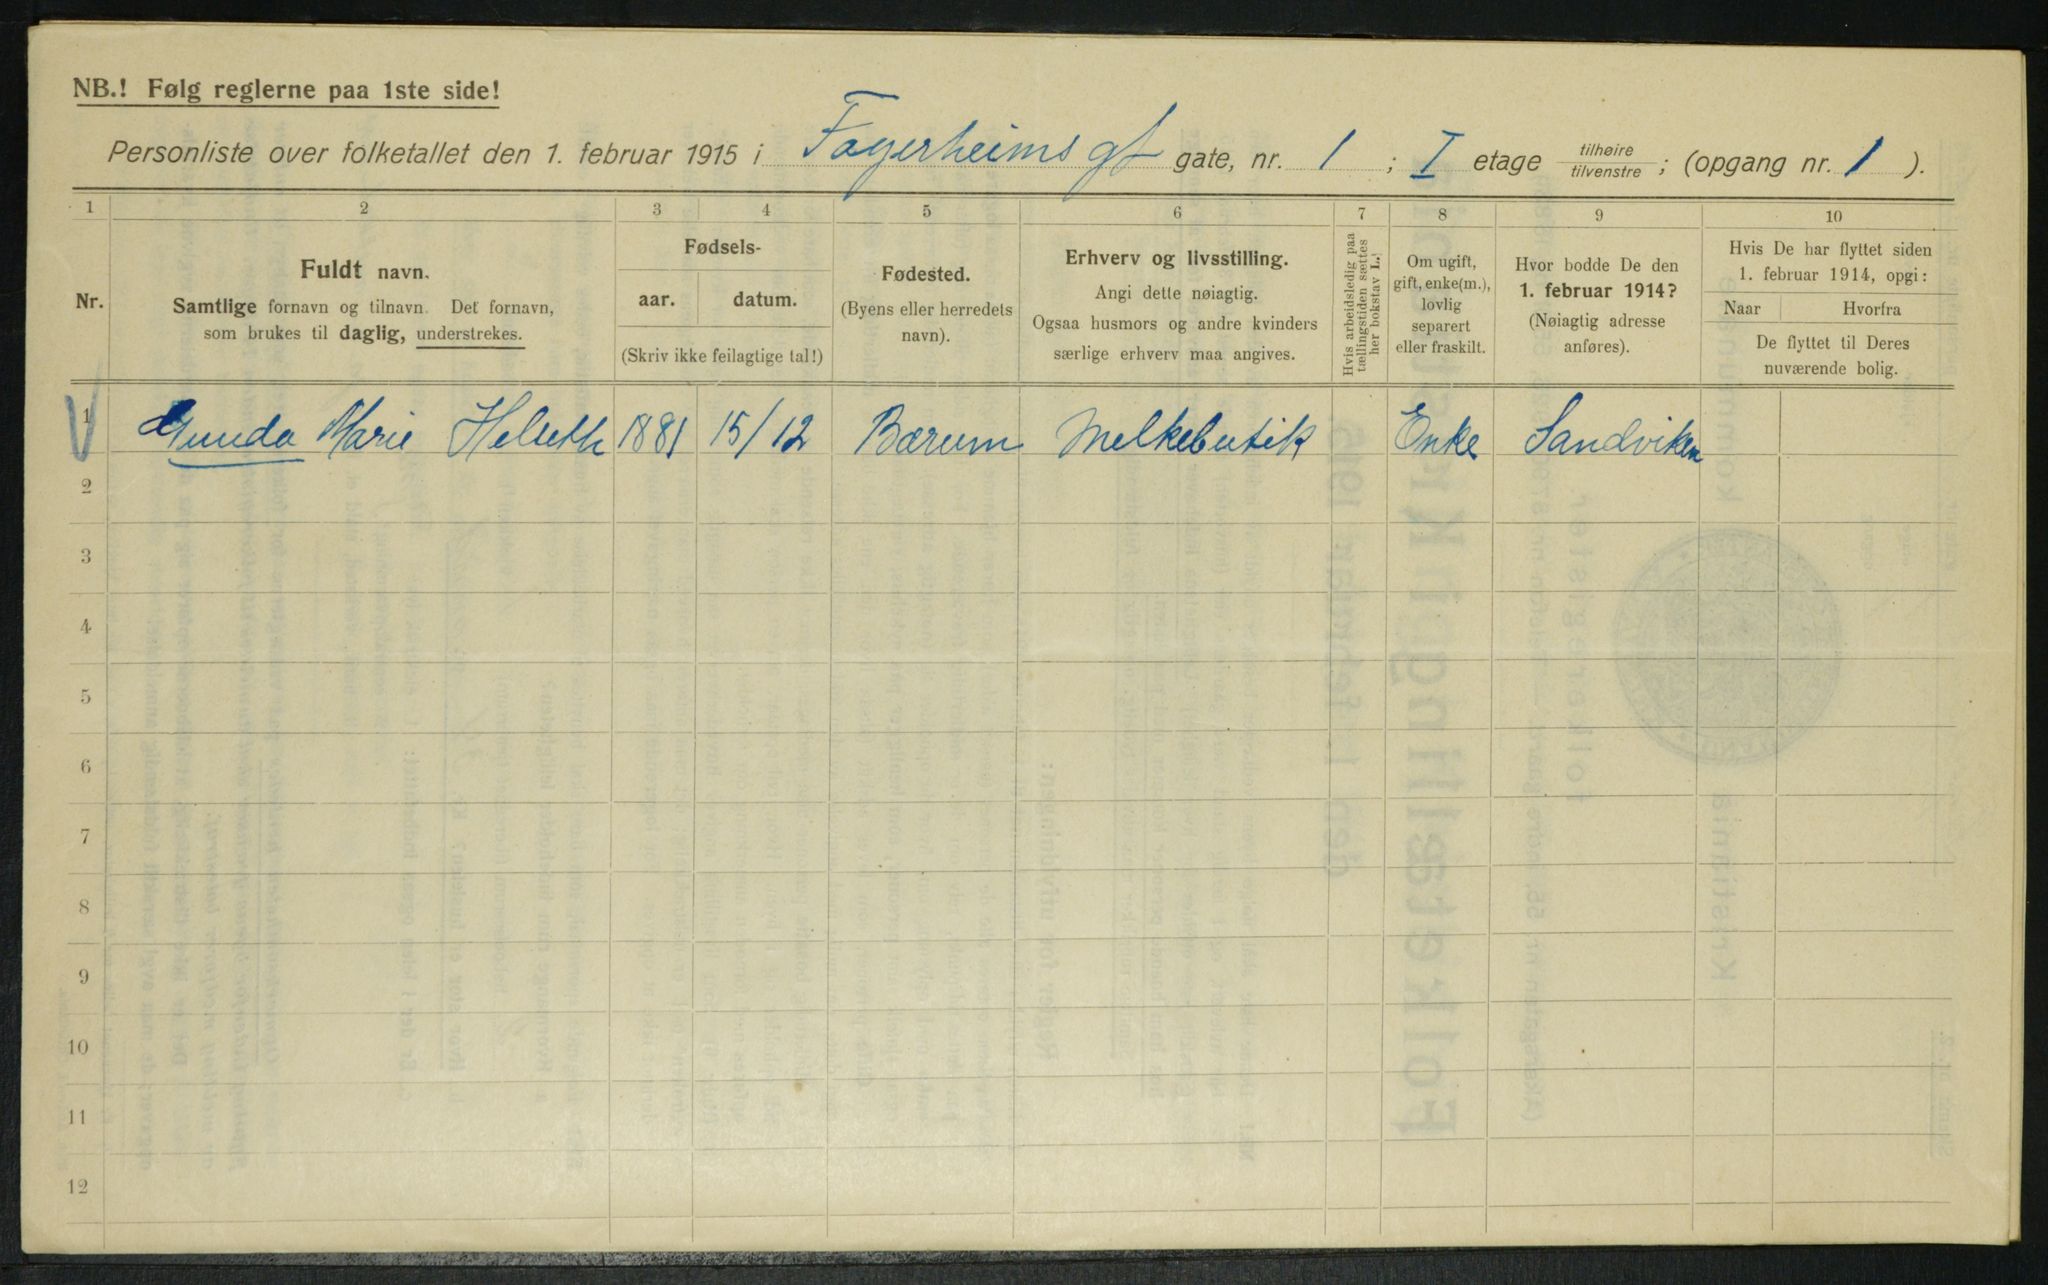 NB.! Følg reglerne paa 1ste side!
Personliste over folketallet den 1. februar 1915 i Fagerheims gt gate, nr. 1 ; I etage tilhøire / tilvenstre ; (opgang nr. 1 ).
1 2 3 4 5 6 7 8 9 10
Nr.
Fuldt navn.
Samtlige fornavn og tilnavn. Det fornavn,
som brukes til daglig, understrekes.
Fødsels-
aar. datum.
(Skriv ikke feilagtige tal!)
Fødested.
(Byens eller herredets
navn).
Erhverv og livsstilling.
Angi dette nøiagtig.
Ogsaa husmors og andre kvinders
særlige erhverv maa angives.
Hvis arbeidsledig paa
tællingstiden sættes
her bokstav L.!
Om ugift,
gift, enke(m.),
lovlig
separert
eller fraskilt.
Hvor bodde De den
1. februar 1914?
(Nøiagtig adresse
anføres).
Hvis De har flyttet siden
1. februar 1914, opgi:
Naar Hvorfra
De flyttet til Deres
nuværende bolig.
1 Gunda Marie Helseth 1881 15/12 Bærum Melkebutik Enke Sandviken
2
3
4
5
6
7
8
9
10
11
12